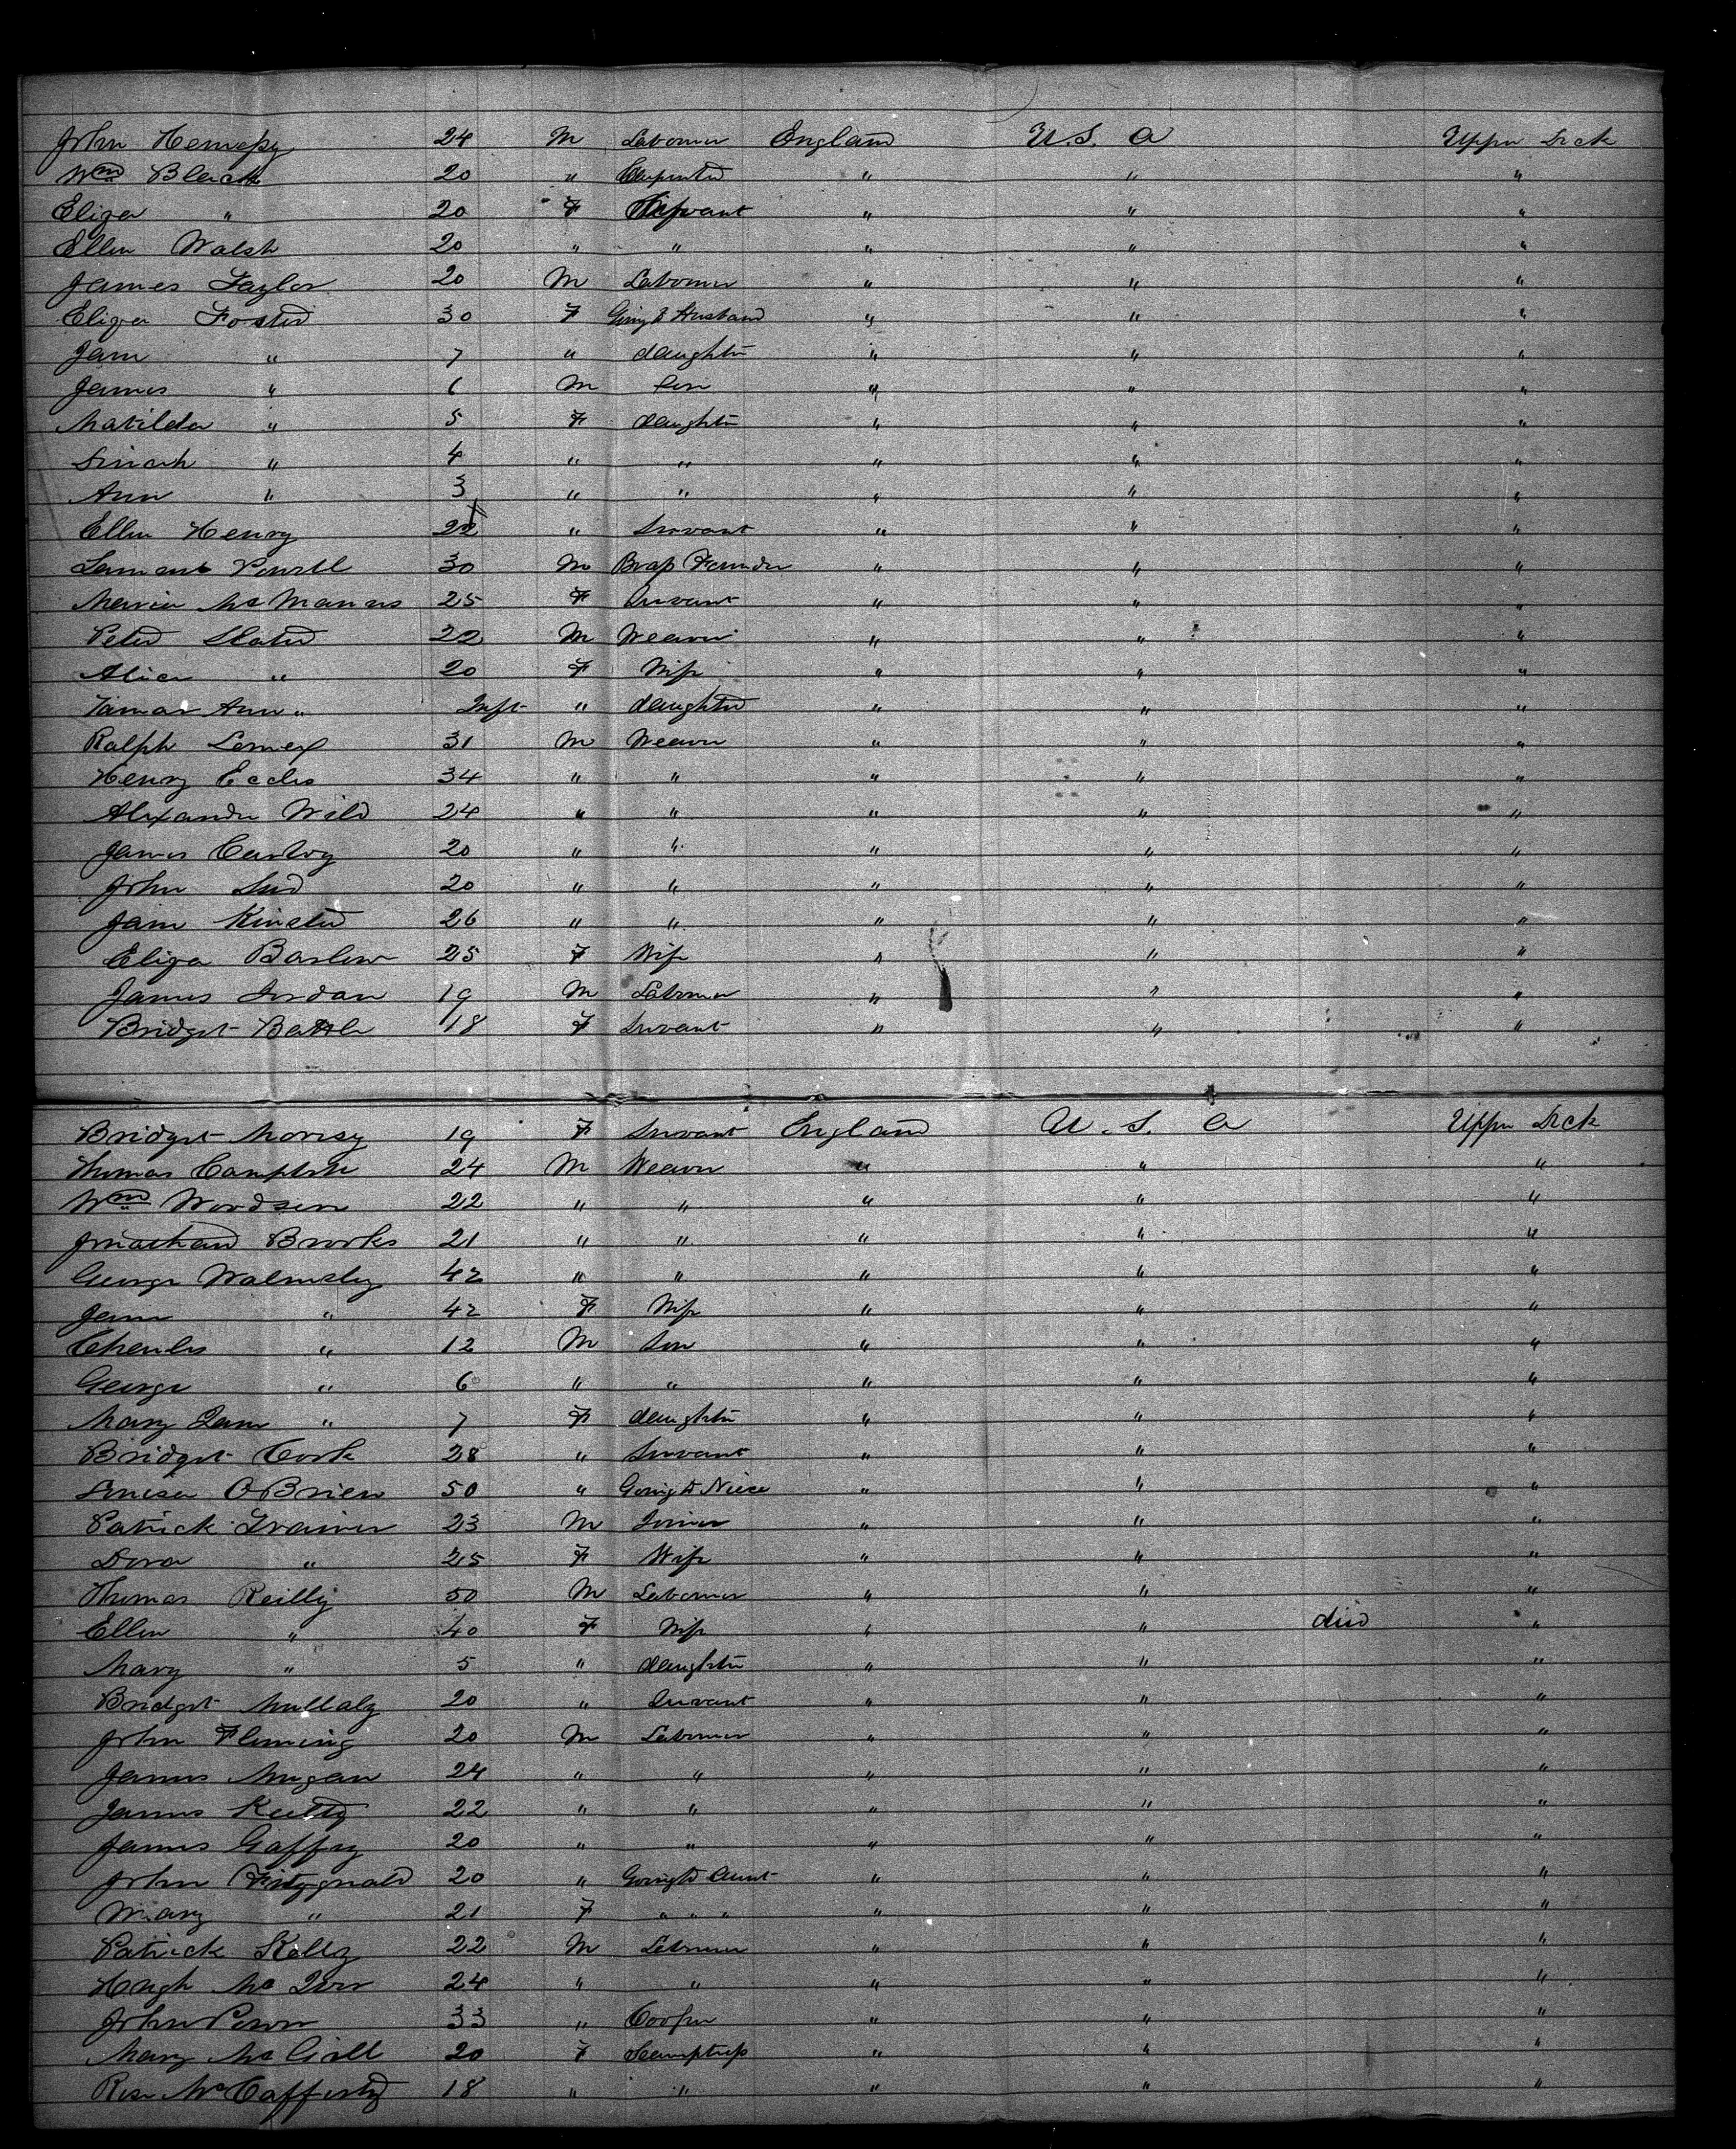 John Hennessy 24 M Labourer England U.S. A Upper Deck
Wm Black 20 " Carpenter " " "
Eliza " 20 F Servant " " "
Ellen Walsh 20 " " " " "
James Taylor 20 M Labourer " " "
Eliza Foster 30 F Going to Husband " " "
Jane " 7 " daughter " " "
James " 6 M Son " " "
Matilda " 5 F daughter " " "
" 4 " " " " "
Ann " 3 " " " " "
Ellen Henry 22 " Servant " " "
Powell 30 M Brass Founder " " "
Maria McManus 25 F Servant " " "
Peter Slater 22 M Weaver " " "
Alice " 20 F Wife " " "
Tamar Ann " Inft " daughter " " "
Ralph Lomax 31 M Weaver " " "
Henry Eccles 34 " " " " "
Alexander Wild 24 " " " " "
James 20 " " " " "
John 20 " " " " "
26 " " " " "
Eliza Barlow 25 F Wife " " "
James Jordan 19 M Labourer " " "
Bridget Battle 18 F Servant " " "
Bridget Morrisy 19 F Servant England U. S. A Upper Deck
Thomas 24 M Weaver " " "
Wm Woodsen 22 " " " " "
Jonathan Brooks 21 " " " " "
George Walmsley 42 " " " " "
Jane " 42 F Wife " " "
Charles " 12 M Son " " "
George " 6 " " " " "
Mary Jane " 7 F daughter " " "
Bridget Cook 28 " Servant " " "
Louisa OBrien 50 " Going to Niece " " "
Patrick Trainer 23 M Joiner " " "
Dora " 25 F Wife " " "
Thomas Reilly 50 M Labourer " " "
Ellen " 40 F Wife " " died "
Mary " 5 " daughter " " "
Bridget Mullaly 20 " Servant " " "
John Fleming 20 M Labourer " " "
James 24 " " " " "
James Keilty 22 " " " " "
James Gaffry 20 " " " " "
John Fitzgerald 20 " Going to Aunt " " "
Mary " 21 F " " " " " "
Patrick Kelly 22 M Labourer " " "
Hugh Mc 24 " " " " "
John 33 " Cooper " " "
Mary McGill 20 F Seamptress " " "
Rose McCafferty 18 " " " " "